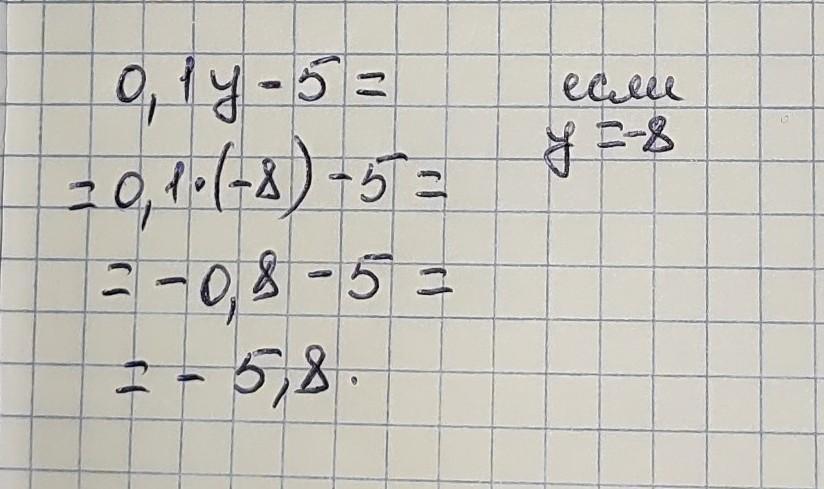 0,1y - 5 =
если
y = -8
= 0,1·(-8) - 5 =
= - 0,8 - 5 =
= - 5,8.